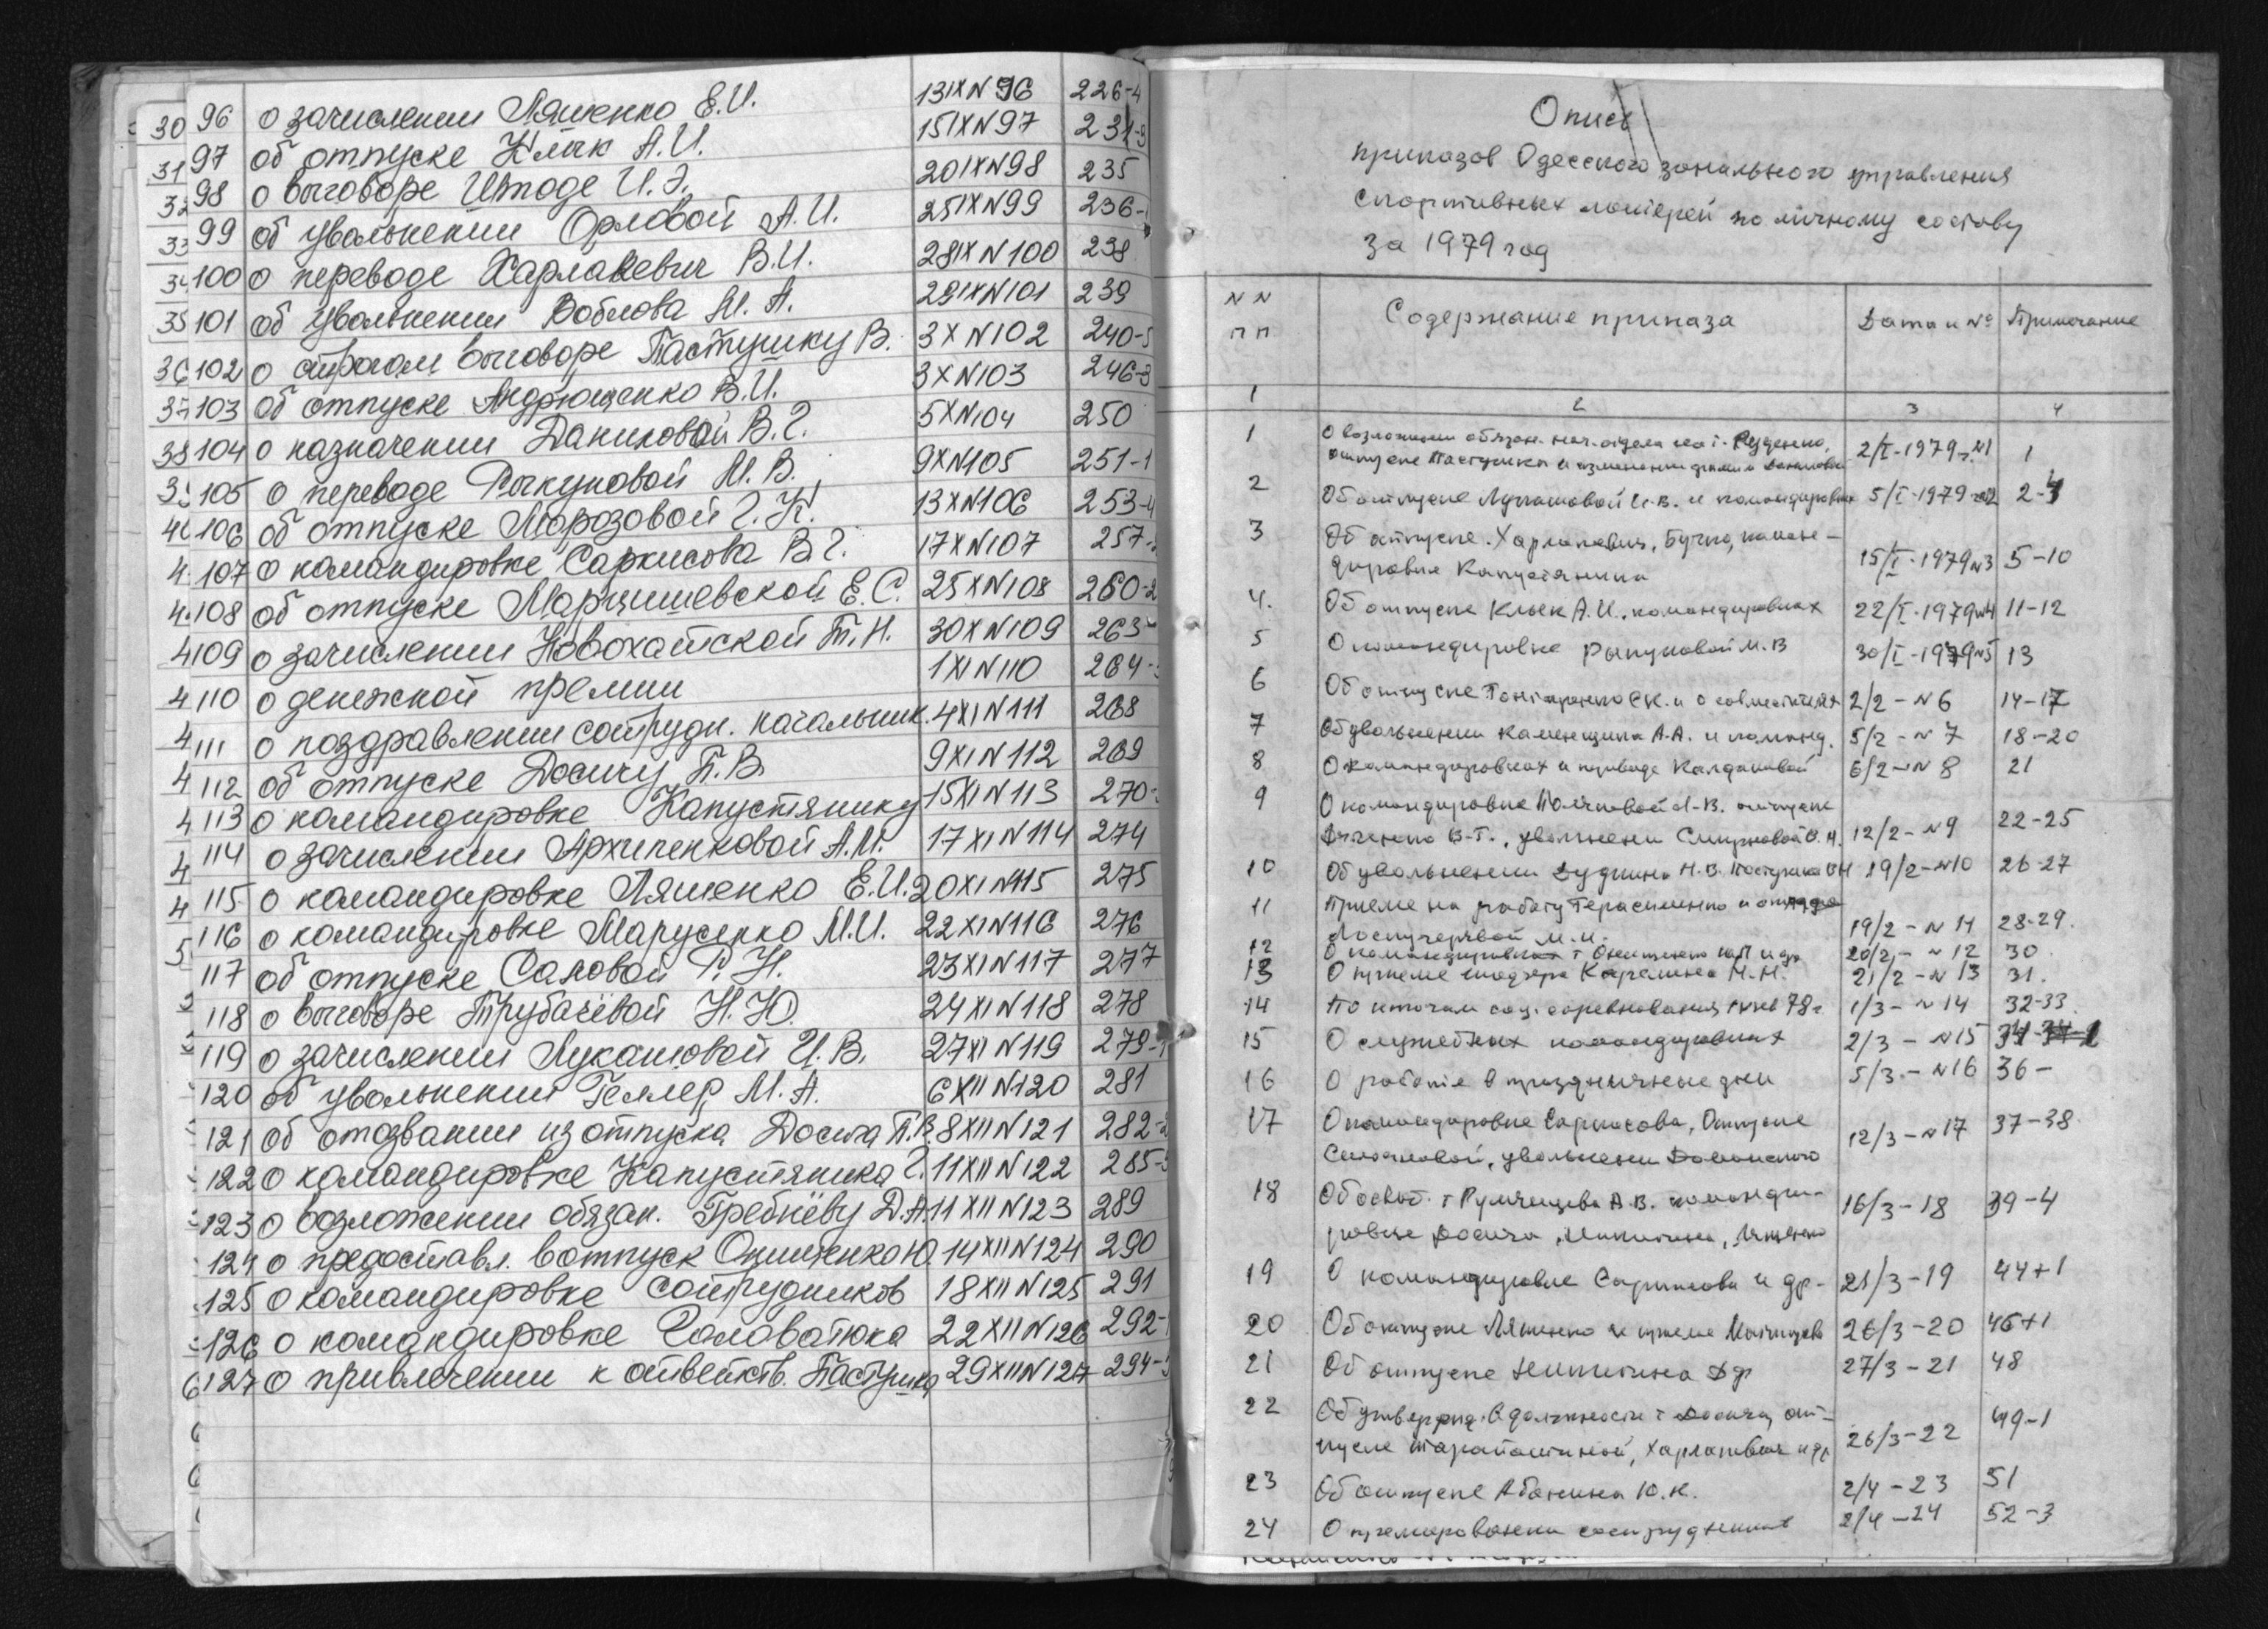 96 о зачислении Ляшенко Е.И. 13IX N 96 226-4
97 об отпуске Клык А.И. 15IX N97 231-3
98 о выговоре Штоде И.Э. 20IX N98 235
99 об увольнении Орловой А.И. 25IX N99 236-1
100 о переводе Харлакевич В.И. 28IX N100 238
101 об увольнении Воблова М.А. 29IX N101 239
102 о строгом выговоре Пастушку В. 3X N102 240-5
103 об отпуске Андрющенко В.И. 3X N103 246-3
104 о назначении Даниловой В.Г. 5X N104 250
105 о переводе Рыкуновой М.В. 9X N105 251-1
106 об отпуске Морозовой Г.К. 13X N106 253-4
107 о командировке Саркисова В.Г. 17X N107 257
108 об отпуске Марцишевской Е.С. 25X N108 260-2
109 о зачислении Новохатской Т.Н. 30X N109 263
110 о денежной премии 1XI N110 264
111 о поздравлении сотрудн. начальник. 4XI N111 268
112 об отпуске Досичу П.В. 9XI N112 269
113 о командировке Капустянику 15XI N113 270
114 о зачислении Архипенковой А.М. 17XI N114 274
115 о командировке Ляшенко Е.И. 20XI N115 275
116 о командировке Марусенко М.И. 22XI N116 276
117 об отпуске Саловой Р.Н. 23XI N117 277
118 о выговоре Трубачёвой Н.Ю. 24XI N118 278
119 о зачислении Лукашовой И.В. 27XI N119 279-1
120 об увольнении Геллер М.А. 6XII N120 281
121 об отозвании из отпуска Досича П.В. 8XII N121 282-2
122 о командировке Капустяника Г. 11XII N122 285-3
123 о возложении обязан. Гребнёву Д.А. 11XII N123 289
124 о предоставл. в отпуск Онищенко Ю. 14XII N124 290
125 о командировке сотрудников 18XII N125 291
126 о командировке Головатюка 22XII N126 292-1
127 о привлечении к ответств. Пастушка 29XII N127 294-3
Опись
приказов Одесского зонального управления
спортивных лотерей по личному составу
за 1979 год
N N
п п
Содержание приказа Дата и № Примечание
1 2 3 4
1 О возложении обязан. нач. отдела на т. Руденко,
отпуске Пастушка и изменении фамил. Даниловой 2/I-1979г. N1 1
2 Об отпуске Лукашовой И.В. и командировках 5/I-1979 N2 2-4
3 Об отпуске Харлакевич, Бучко, коман-
дировке Капустяника 15/I-1979 N3 5-10
4. Об отпуске Клык А.И., командировках 22/I-1979 N4 11-12
5 О командировке Рыкуновой М.В 30/I-1979 N5 13
6 Об отпуске Гонтаренко С.К. и о совместителях 2/2 - N 6 14-17
7 Об увольнении Каменщика А.А. и команд. 5/2 - N 7 18-20
8 О командировках и переводе Калдаковой 6/2 - N 8 21
9 О командировке Поляковой Л.В. отпуске
Дяченко В.Г., увольнении Смирновой О.Н. 12/2 - N9 22-25
10 Об увольнении Дудкина Н.В. Пастушка ВН 19/2 - N10 26-27
11 Приеме на работу Герасименко и
М.И. 19/2 - N 11 28-29.
12 О командировках т Онищенко и др 20/2 - N 12 30
13 О приеме Карелина Н.Н. 21/2 - N 13 31.
14 По итогам соц. соревнования IV кв 78г 1/3 - N 14 32-33
15 О служебных командировках 2/3 - N15 34
16 О работе в праздничные дни 5/3 - N16 36 -
17 О командировке Саркисова, Отпуске
Смирновой, увольнении Доманского 12/3 - N17 37-38
18 Об освоб. т Румянцева А.В. команди-
ровке Досича, Никитина, Ляшенко 16/3-18 39-4
19 О командировке Саркисова и др. 21/3-19 44+1
20 Об отпуске Ляшенко и приеме 26/3-20 46+1
21 Об отпуске Никитина Др 27/3-21 48
22 Об утвержд. в должности т Досича, от-
пуске Тарапатиной, Харлакевич и др 26/3-22 49-1
23 Об отпуске Абакина Ю.К. 2/4-23 51
24 О премировании сотрудников 2/4-24 52-3